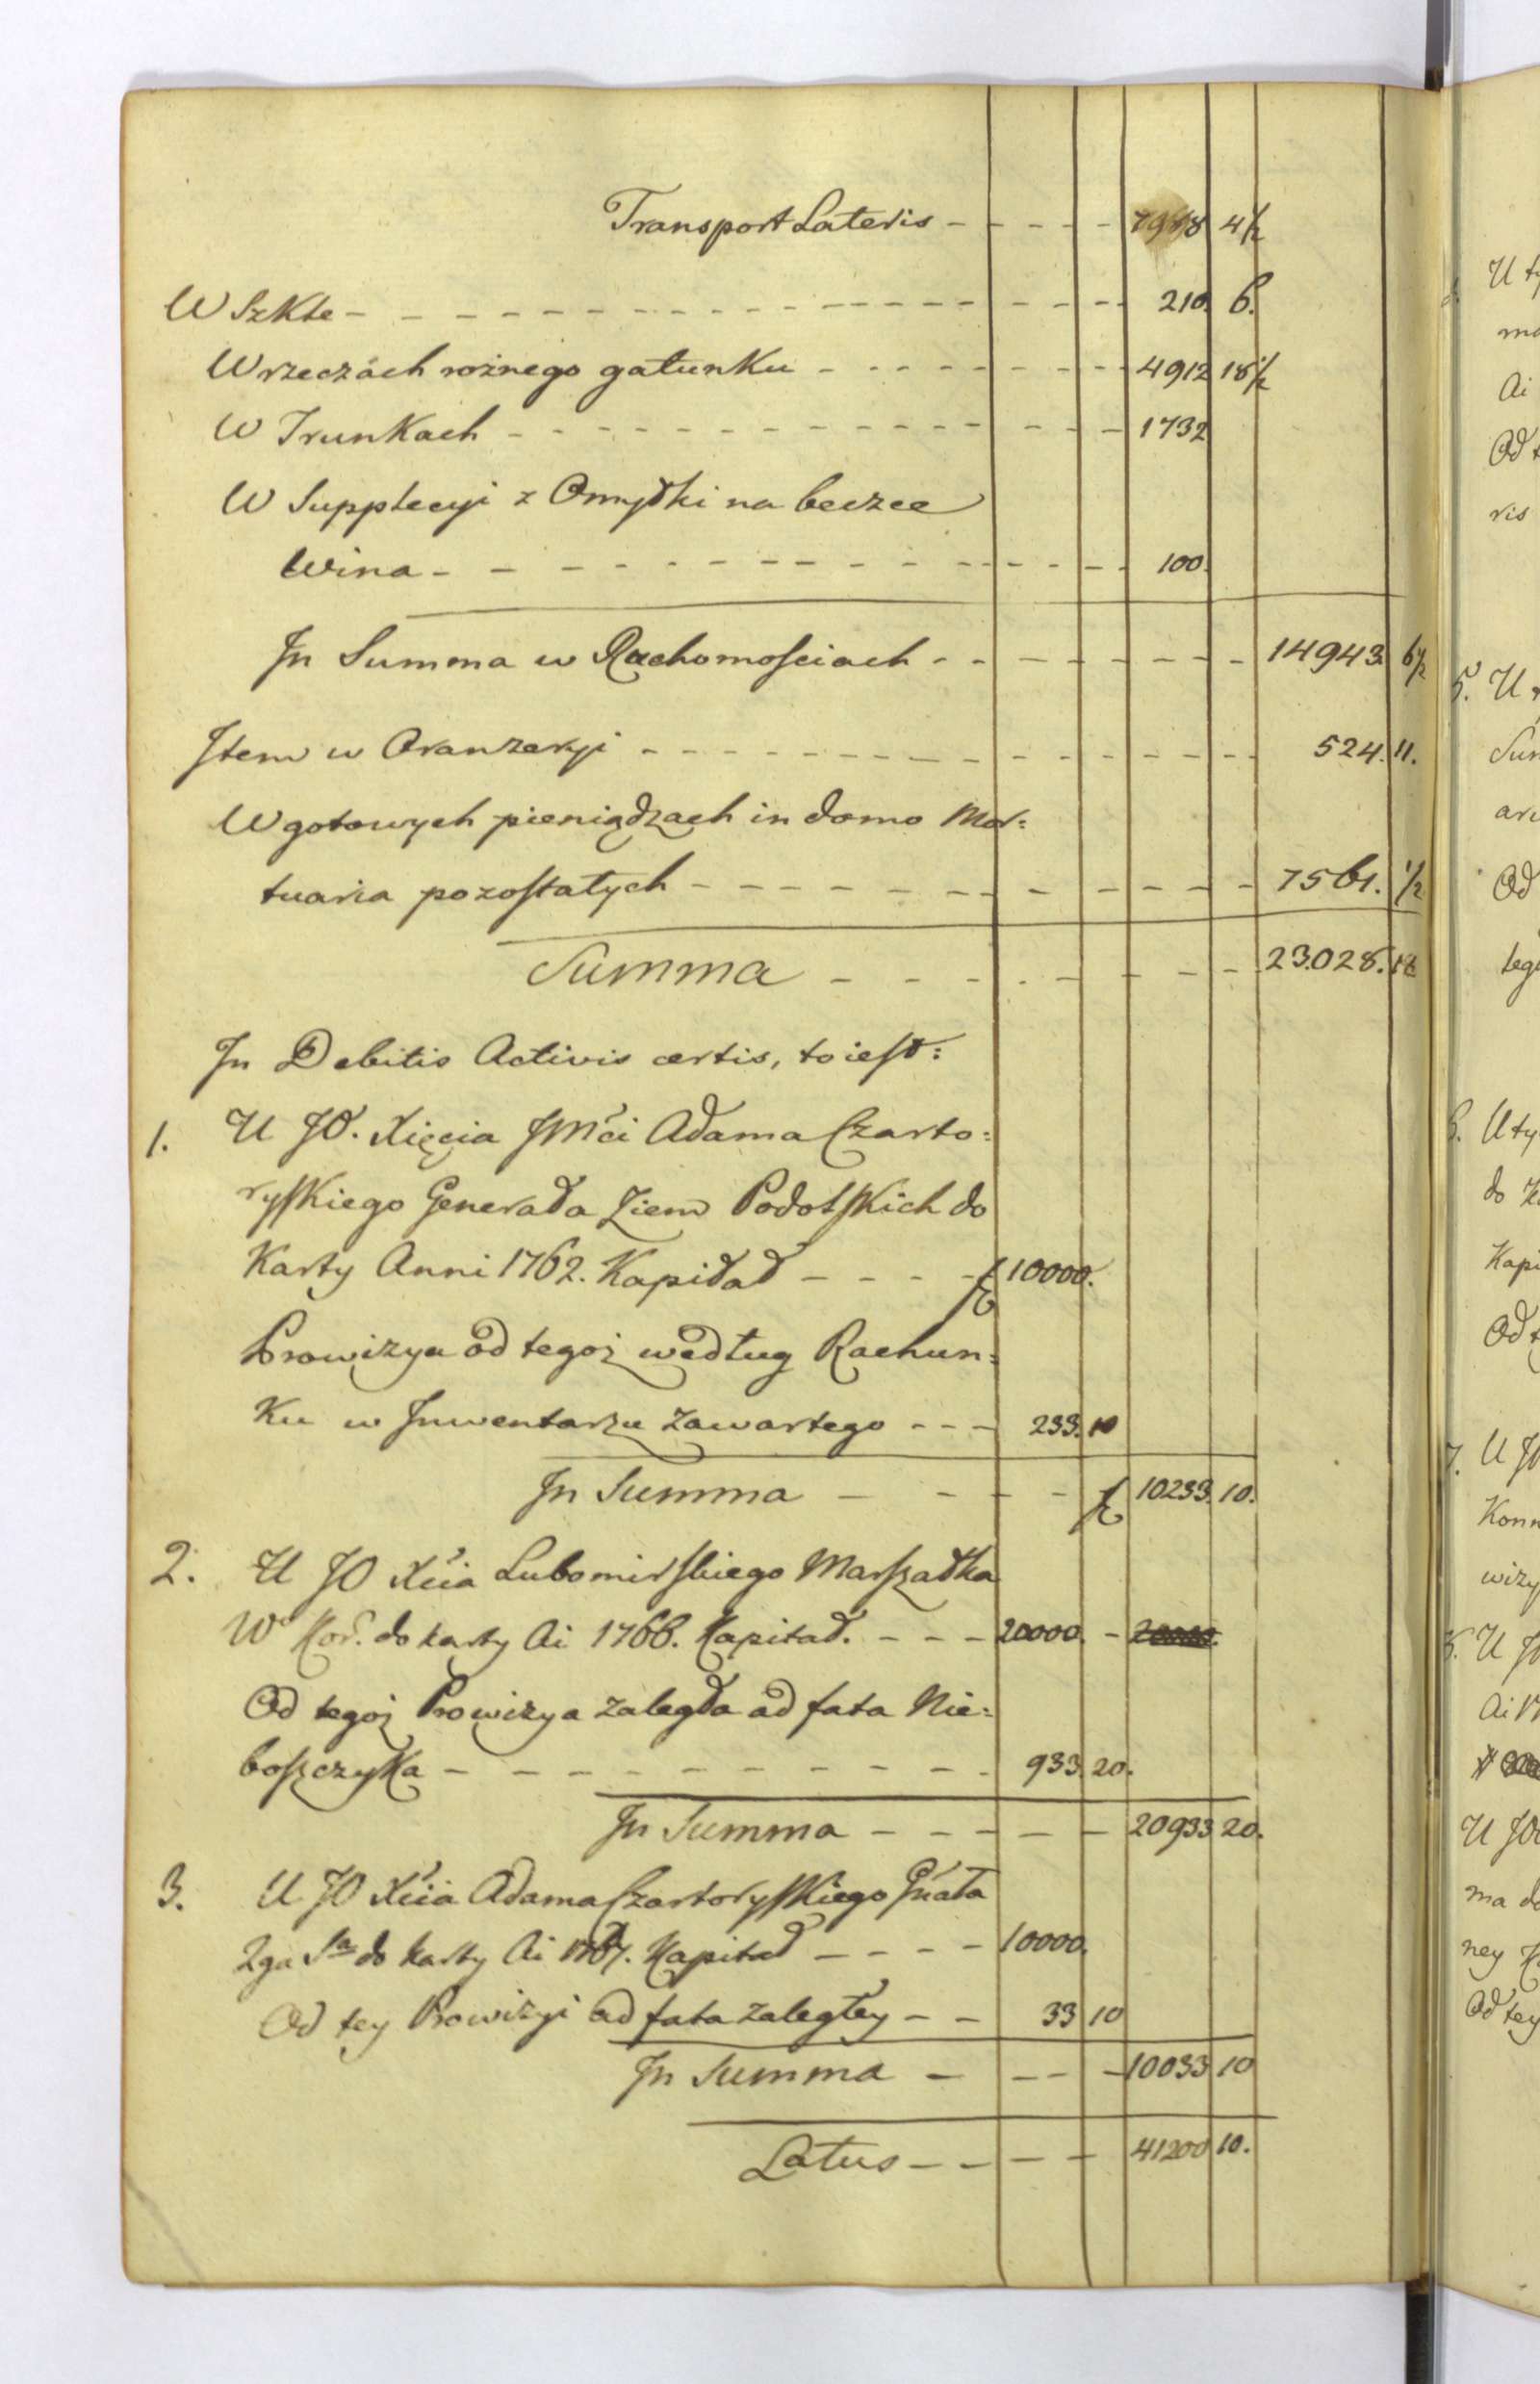 Transport Lateris - - - - 7988 4½
W Szkle - - - - 210. 6.
W rzeczach rożnego gatunku - - - - 4912 18½
W Trunkach - - - - 1732
W Supplecyi z Omyłki na beczce
Wina - - - - 100.
Jn Summa w Ruchomościach - - - - 14943. 6½
Jtem w Oranzeryi - - - - 524. 11.
W gotowych pieniądzach in domo Mor:
tuaria pozostałych - - - - 7561. ½
Summa - - - - 23.028. 18
Jn Debitis Activis certis, to iest:
1. U JO. Xięcia JMći Adama Czarto:
ryskiego Generała Ziem Podolskich do
Karty Anni 1762. Kapitał - - - - f 10000.
Prowizya od tegoż według Rachun:
ku w Jnwentarzu zawartego - - - 233. 10
Jn Summa - - - - f 10233. 10.
2. U JO Xcia Lubomirskiego Marszałka
Wo Kor. do karty Ai 1766. Kapitał. - - - 20000. - 20000.
Od tegoż Prowizya zaległa ad fata Nie:
boszczyka - - - - 933. 20.
Jn Summa - - - - 20933 20.
3. U JO Xcia Adama Czartoryskiego Gńała
2ga Sa do karty Ai 1767. Kapitał - - - - 10000.
Od tey Prowizyi ad fata zaległey - - 33 10
Jn Summa - - - - 10033 10
Latus - - - - 41200 10.